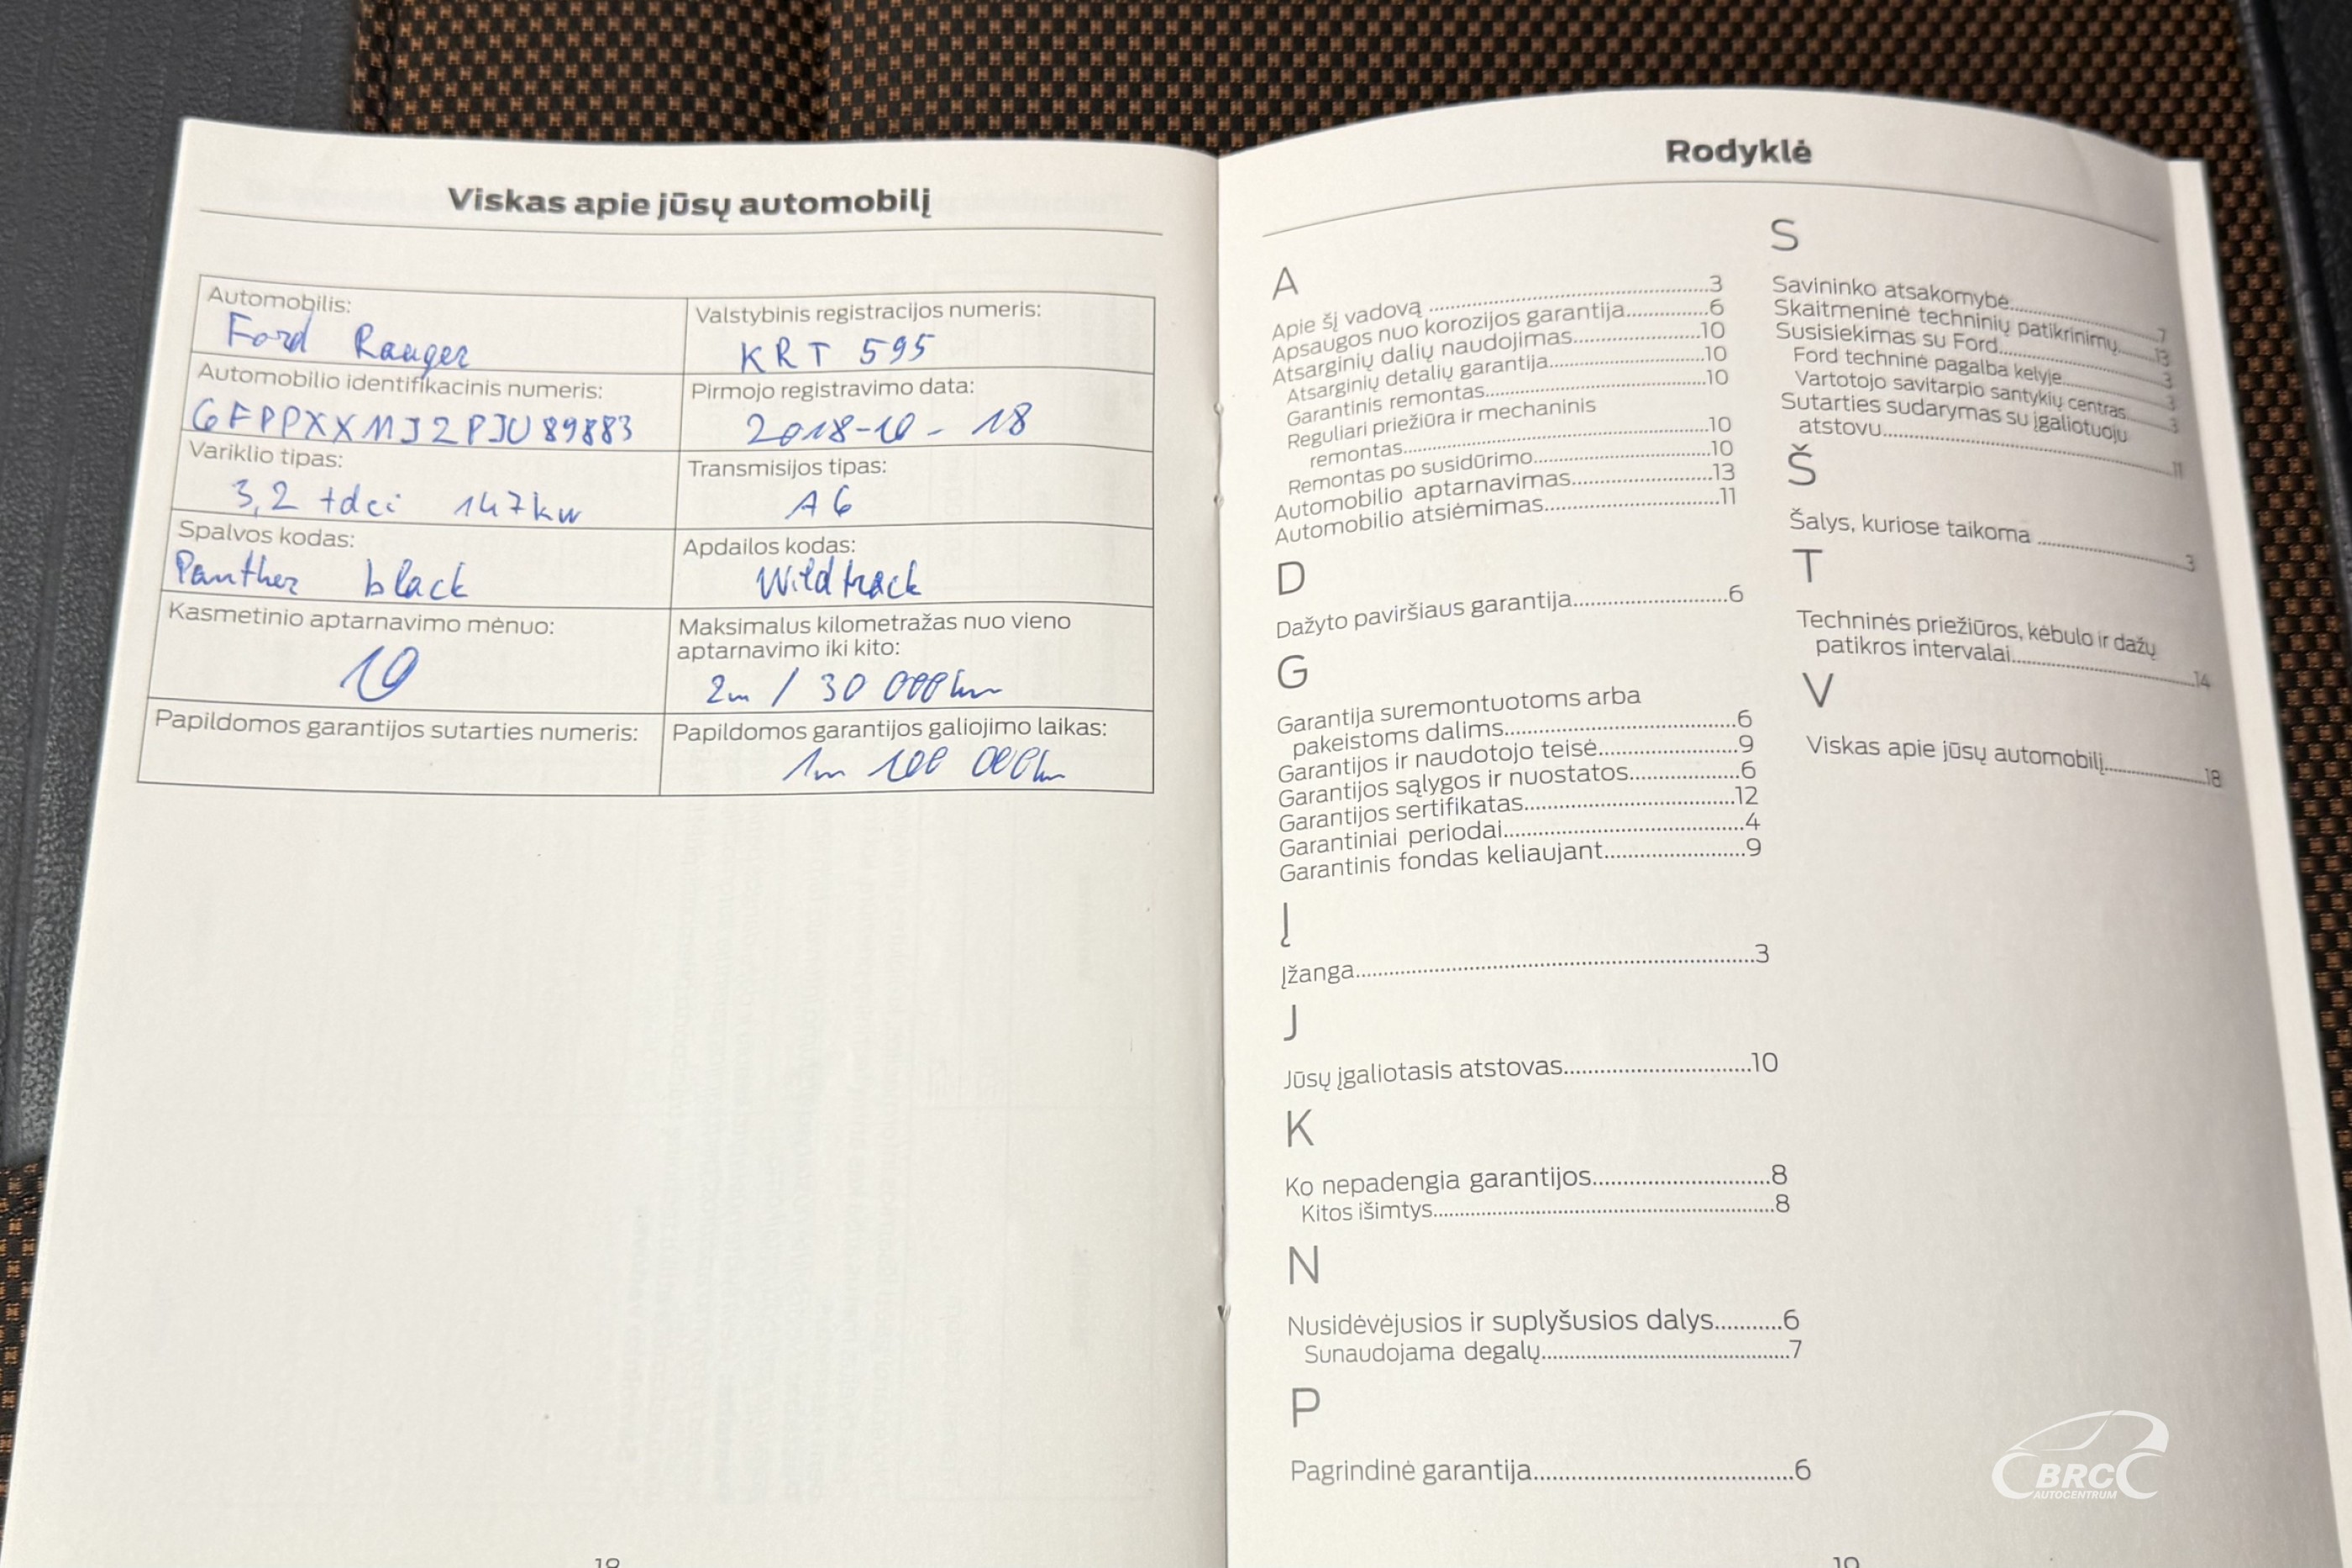 Viskas apie jūsų automobilį
Automobilis:
Ford Ranger
Valstybinis registracijos numeris:
KRT 595
Automobilio identifikacinis numeris:
6FPPXXMJ2PJU89883
Pirmojo registravimo data:
2018-10-18
Variklio tipas:
3,2 tdci 147kw
Transmisijos tipas:
A6
Spalvos kodas:
Panther black
Apdailos kodas:
Wildtrack
Kasmetinio aptarnavimo mėnuo:
10
Maksimalus kilometražas nuo vieno
aptarnavimo iki kito:
2m / 30 000km
Papildomos garantijos sutarties numeris:
Papildomos garantijos galiojimo laikas:
1m 100 000km
Rodyklė
A
Apie šį vadovą ..........3
Apsaugos nuo korozijos garantija..........6
Atsarginių dalių naudojimas..........10
Atsarginių detalių garantija..........10
Garantinis remontas..........10
Reguliari priežiūra ir mechaninis
remontas..........10
Remontas po susidūrimo..........10
Automobilio aptarnavimas..........13
Automobilio atsiėmimas..........11
D
Dažyto paviršiaus garantija..........6
G
Garantija suremontuotoms arba
pakeistoms dalims..........6
Garantijos ir naudotojo teisė..........9
Garantijos sąlygos ir nuostatos..........6
Garantijos sertifikatas..........12
Garantiniai periodai..........4
Garantinis fondas keliaujant..........9
Į
Įžanga..........3
J
Jūsų įgaliotasis atstovas..........10
K
Ko nepadengia garantijos..........8
Kitos išimtys..........8
N
Nusidėvėjusios ir suplyšusios dalys..........6
Sunaudojama degalų..........7
P
Pagrindinė garantija..........6
S
Savininko atsakomybė..........7
Skaitmeninė techninių patikrinimų..........13
Susisiekimas su Ford..........3
Ford techninė pagalba kelyje..........3
Vartotojo savitarpio santykių centras..........3
Sutarties sudarymas su įgaliotuoju
atstovu..........11
Š
Šalys, kuriose taikoma ..........3
T
Techninės priežiūros, kėbulo ir dažų
patikros intervalai..........14
V
Viskas apie jūsų automobilį..........18
BRC
AUTOCENTRUM